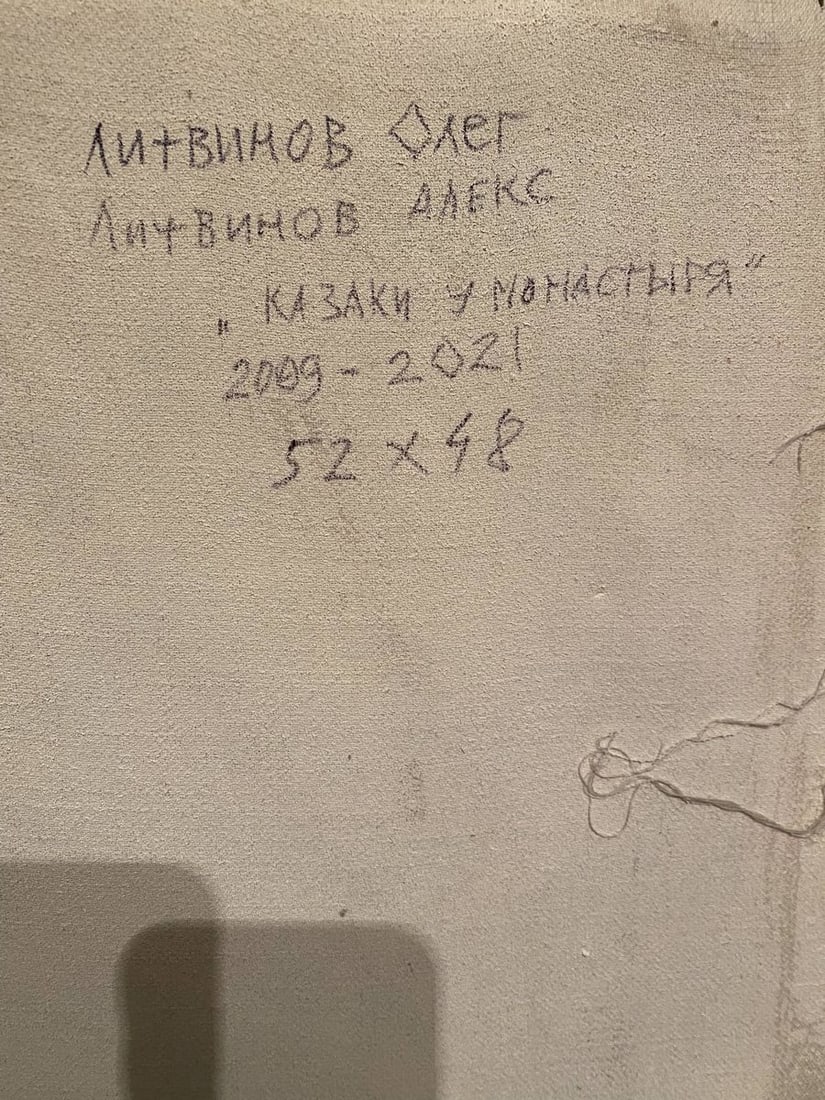 Литвинов Олег
Литвинов АЛЕКС
„ КАЗАКИ У МОНАСТЫРЯ"
2009 - 2021
52 x 48